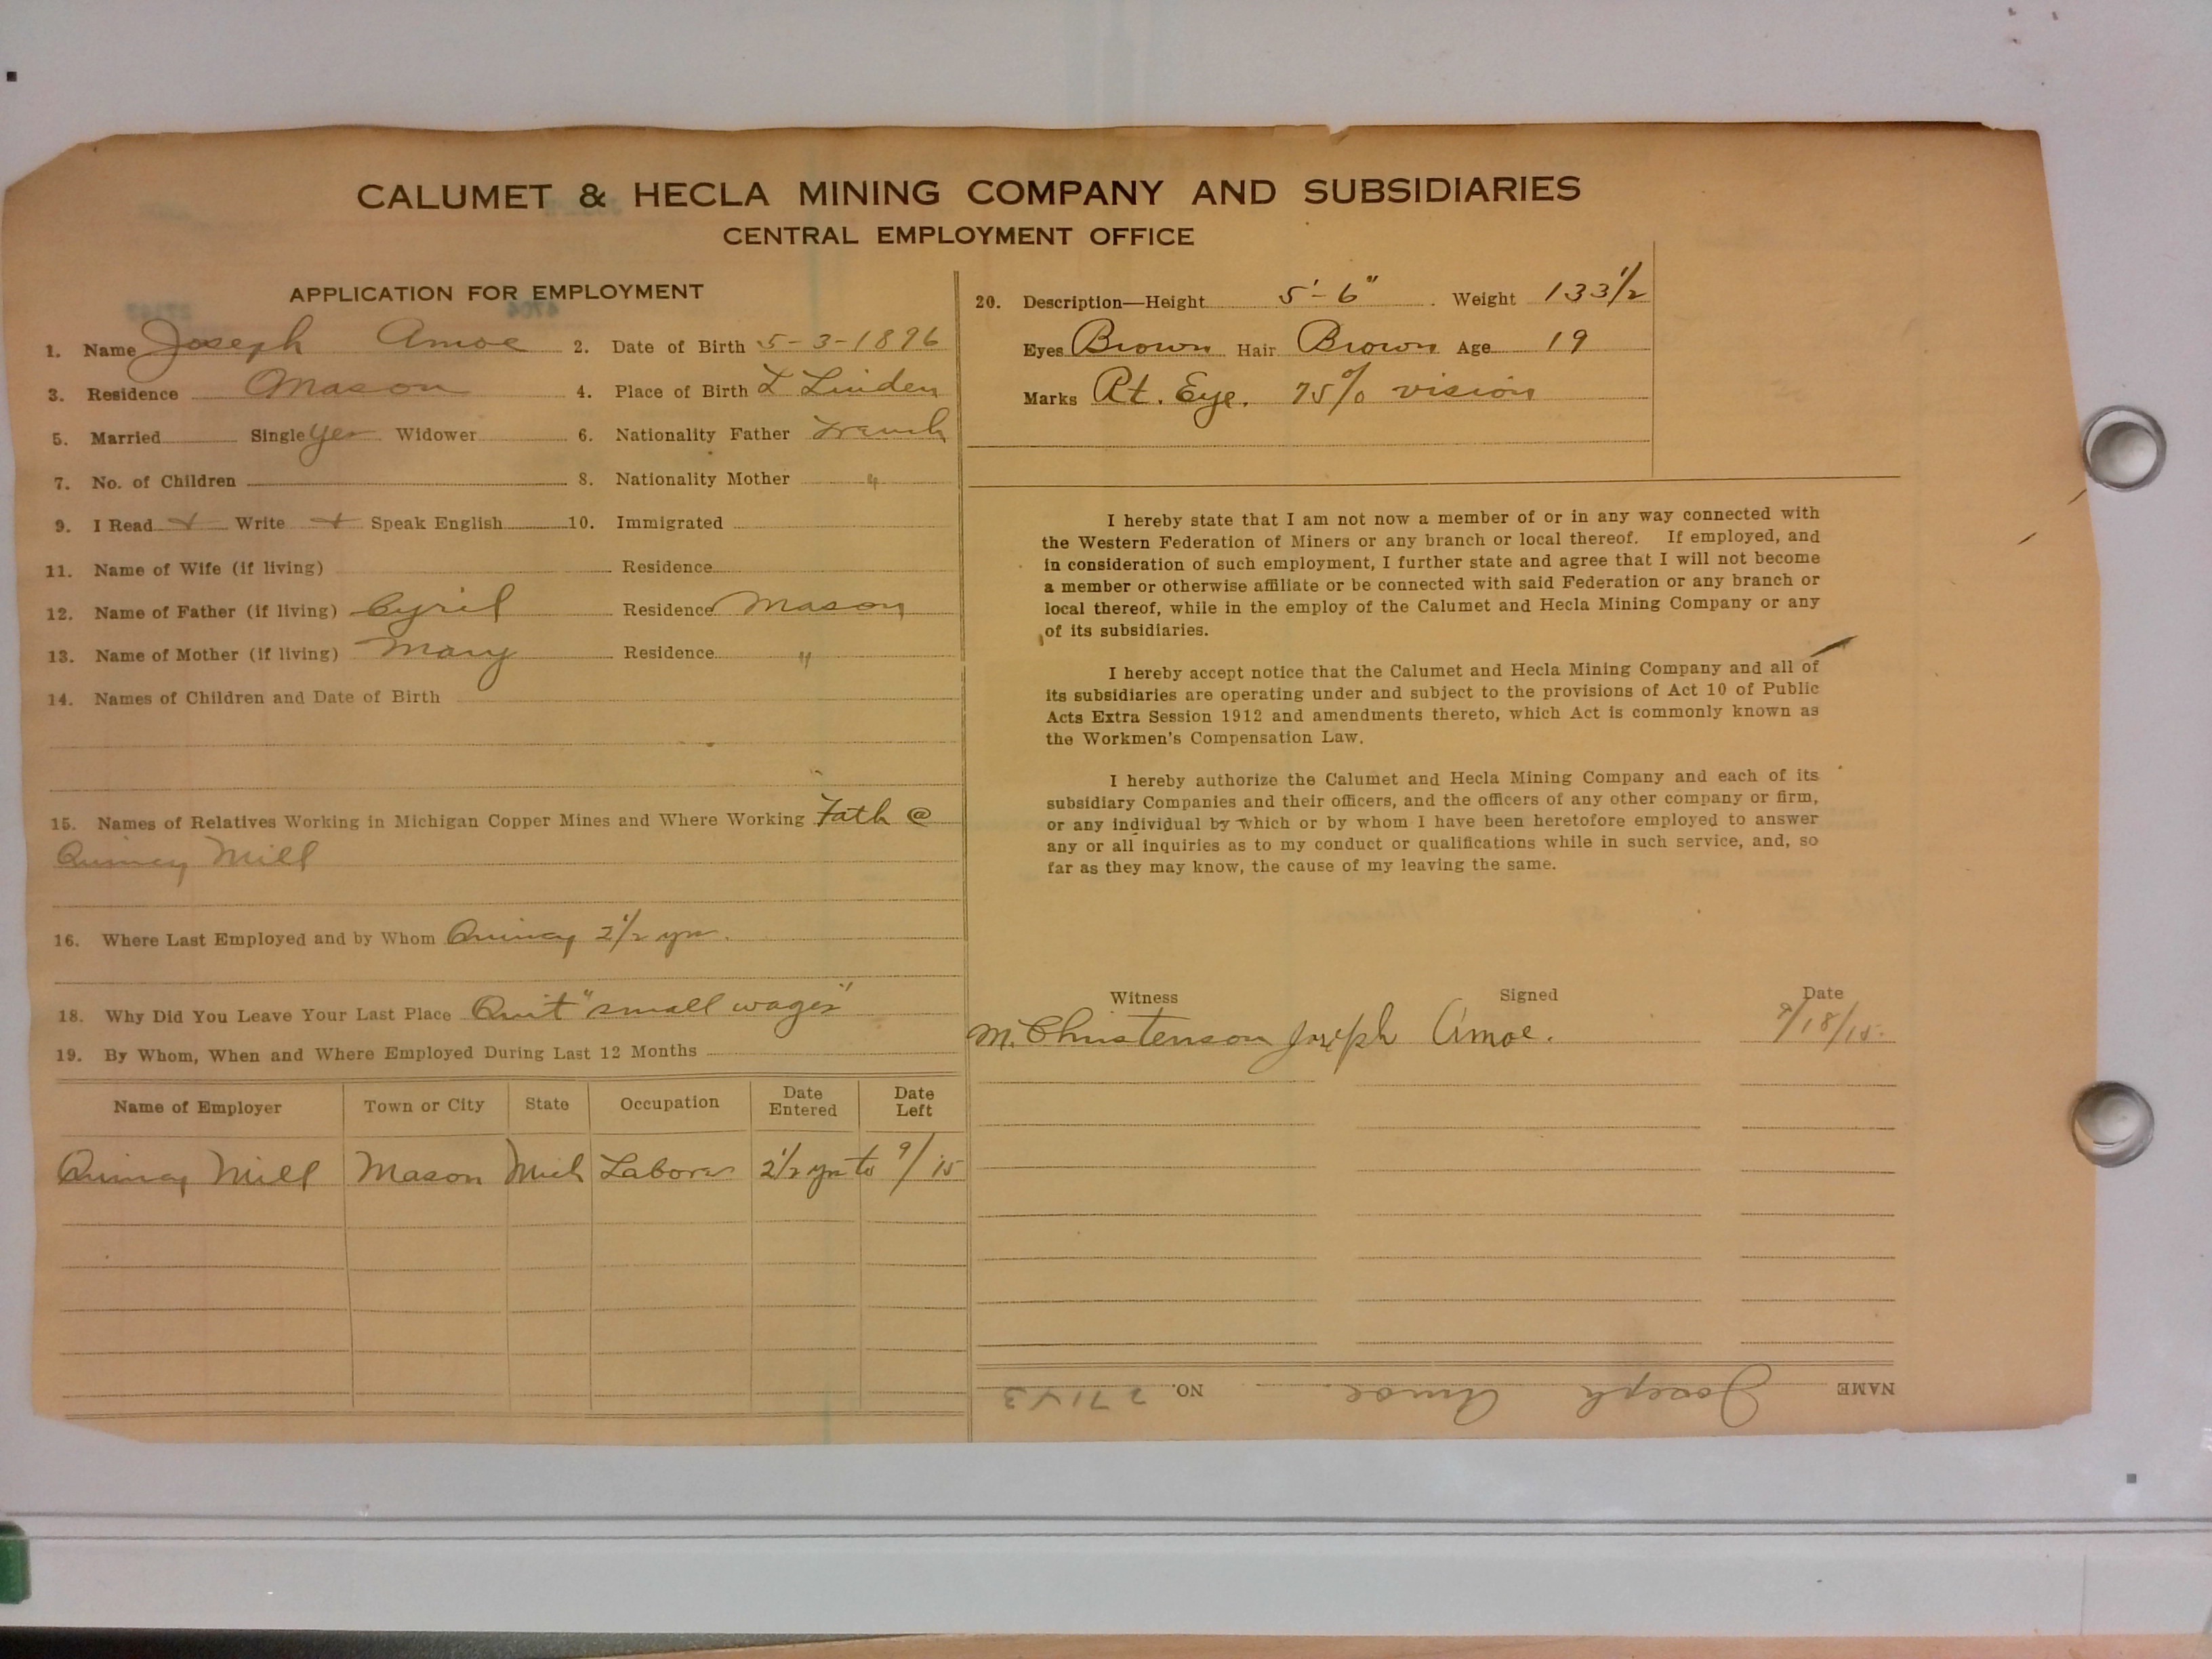 CALUMET & HECLA MINING COMPANY AND SUBSIDIARIES
CENTRAL EMPLOYMENT OFFICE
APPLICATION FOR EMPLOYMENT
1. Name Joseph Amoe 2. Date of Birth 5-3-1896
3. Residence Mason 4. Place of Birth L Linden
5. Married Single yes Widower 6. Nationality Father French
7. No. of Children 8. Nationality Mother "
9. I Read + Write + Speak English 10. Immigrated
11. Name of Wife (if living) Residence
12. Name of Father (if living) Cyril Residence Mason
13. Name of Mother (if living) Mary Residence "
14. Names of Children and Date of Birth
15. Names of Relatives Working in Michigan Copper Mines and Where Working Fath @
Quincy Mill
16. Where Last Employed and by Whom Quincy 2 1/2 yrs.
18. Why Did You Leave Your Last Place Quit "small wages"
19. By Whom, When and Where Employed During Last 12 Months
Name of Employer Town or City State Occupation Date Entered Date Left
Quincy Mill Mason Mich Labora 2 1/2 yrs to 9/15
20. Description—Height 5'-6" Weight 133 1/2
Eyes Brown Hair Brown Age 19
Marks Rt. Eye. 75% vision
I hereby state that I am not now a member of or in any way connected with
the Western Federation of Miners or any branch or local thereof. If employed, and
in consideration of such employment, I further state and agree that I will not become
a member or otherwise affiliate or be connected with said Federation or any branch or
local thereof, while in the employ of the Calumet and Hecla Mining Company or any
of its subsidiaries.
I hereby accept notice that the Calumet and Hecla Mining Company and all of
its subsidiaries are operating under and subject to the provisions of Act 10 of Public
Acts Extra Session 1912 and amendments thereto, which Act is commonly known as
the Workmen's Compensation Law.
I hereby authorize the Calumet and Hecla Mining Company and each of its
subsidiary Companies and their officers, and the officers of any other company or firm,
or any individual by which or by whom I have been heretofore employed to answer
any or all inquiries as to my conduct or qualifications while in such service, and, so
far as they may know, the cause of my leaving the same.
Witness Signed Date
M. Christenson Joseph Amoe. 9/18/15.
NAME Joseph Amoe NO.